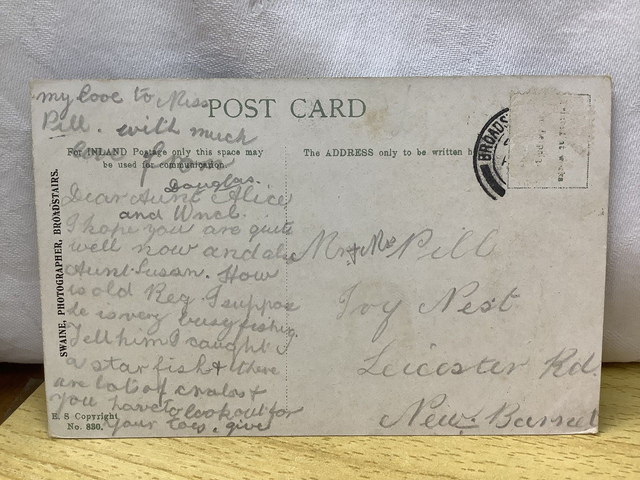 my love to Miss
Pill. with much
love from
Douglas.
POST CARD
For INLAND Postage only this space may
be used for communication.
The ADDRESS only to be written h
BROADS
SWAINE, PHOTOGRAPHER, BROADSTAIRS.
Dear Aunt Alice
and Uncle.
I hope you are quite
well now and also
Aunt Susan. How
is old Reg I suppose
he is very busy fishing.
Tell him I caught
a star fish & there
are lots of crabs &
you have to look out for
your toes. give
E. S Copyright
No. 830.
Mr & Mrs Pill
Ivy Nest
Leicester Rd.
New Barnet